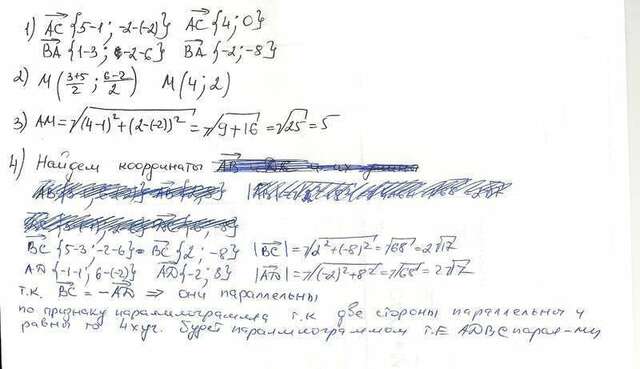 1) AC {5-1; -2-(-2)} AC {4; 0}
BA {1-3; -2-6} BA {-2; -8}
2) M(3+5/2; 6-2/2) M(4; 2)
3) AM=√(4-1)²+(2-(-2))² = √9+16 = √25 = 5
4) Найдем координаты
BC {5-3; -2-6} = BC {2; -8} |BC| = √2²+(-8)² = √68 = 2√17
AD {-1-1; 6-(-2)} AD {-2; 8} |AD| = √(-2)²+8² = √68 = 2√17
т.к. BC = -AD ⇒ они параллельны
по признаку параллилограмма т.к две стороны параллельны и
равны то 4хуг. будет параллилограммом т.е ADBC парал-мм